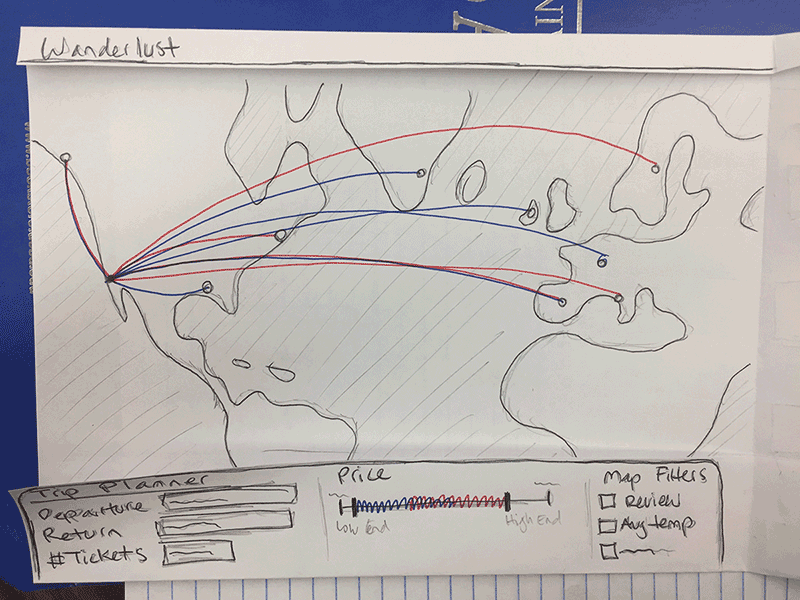 Wanderlust
Trip Planner
Departure
Return
#Tickets
Price
Low End
High End
Map Filters
Review
Avg temp